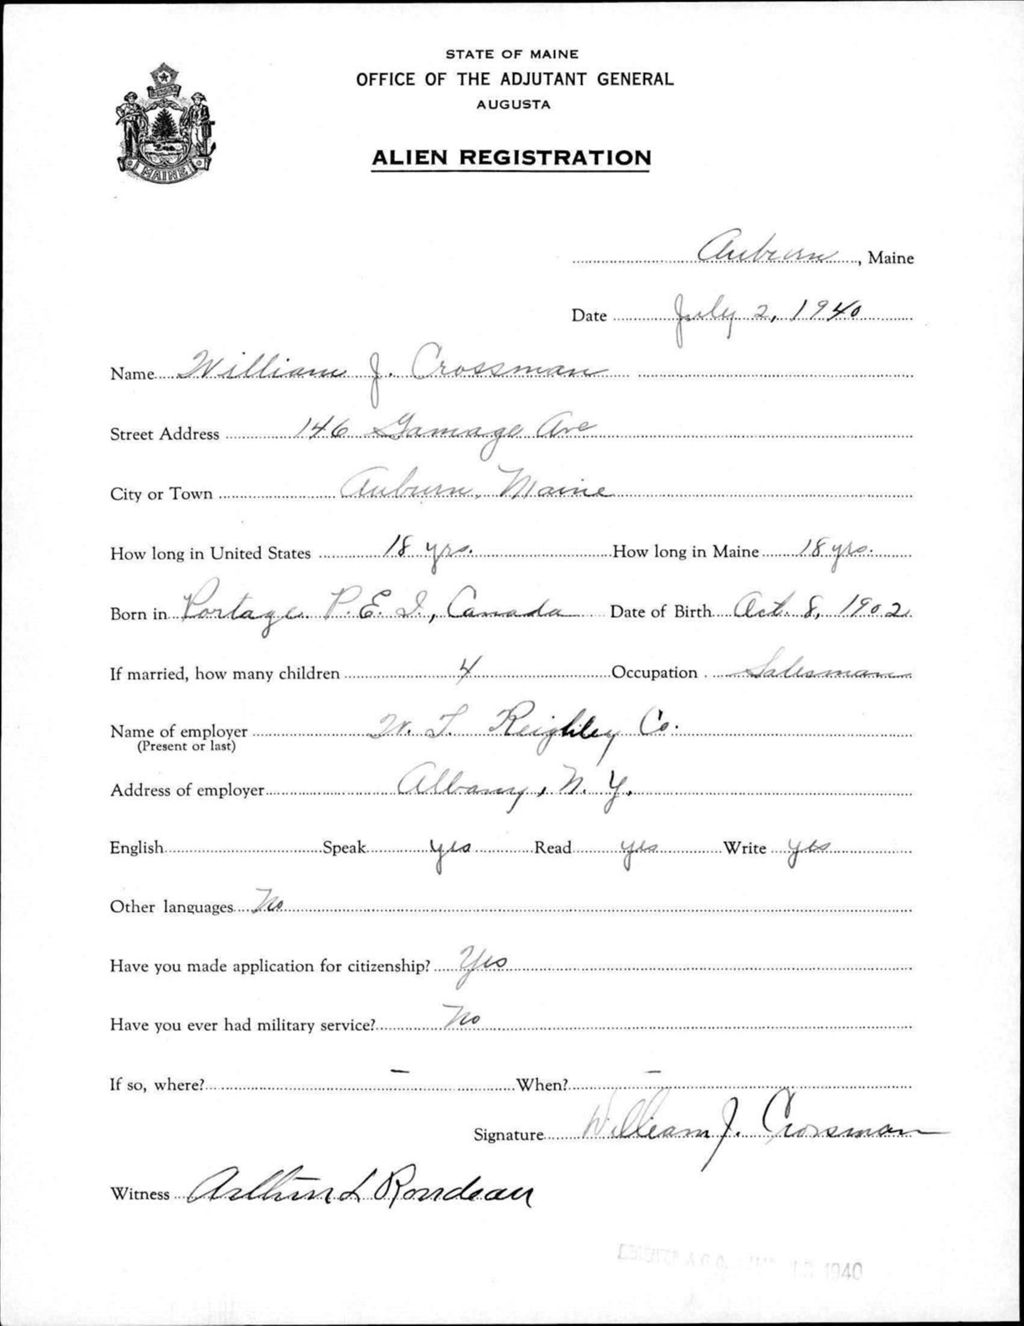 STATE OF MAINE
OFFICE OF THE ADJUTANT GENERAL
AUGUSTA
ALIEN REGISTRATION
MAINE
Auburn, Maine
Date July 2, 1940
Name William J. Crossman
Street Address 146 Gamage Ave
City or Town Auburn, Maine
How long in United States 18 yrs. How long in Maine 18 yrs.
Born in Portage P. E. I., Canada Date of Birth Oct. 8, 1902
If married, how many children 4 Occupation Salesman
Name of employer W. T. Reighley Co.
(Present or last)
Address of employer Albany, N. Y.
English Speak yes Read yes Write yes
Other languages No
Have you made application for citizenship? Yes
Have you ever had military service? No
If so, where? – When? –
Signature William J. Crossman
Witness Arthur L Rondeau
1940